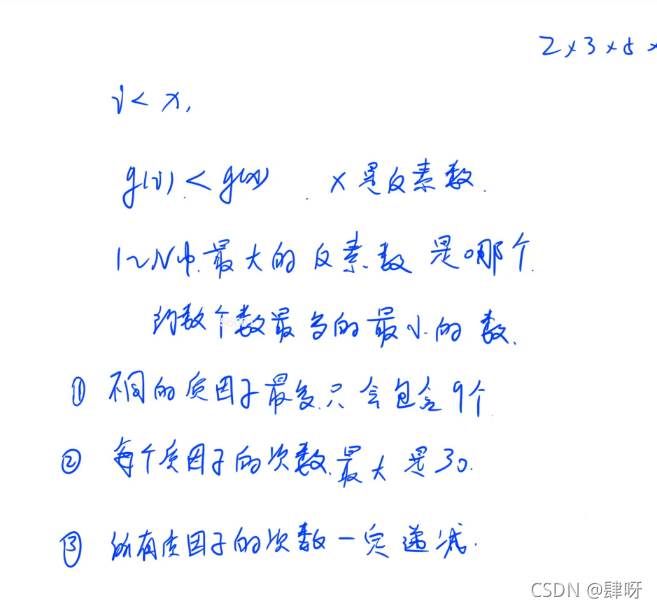 2×3×5×
i < x,
g(i) < g(x) x是反素数.
1~N中.最大的反素数是哪个.
约数个数最多的最小的数.
① 不同的质因子最多只会包含9个
② 每个质因子的次数.最大是30.
③ 所有质因子的次数一定递减.
CSDN @肆呀